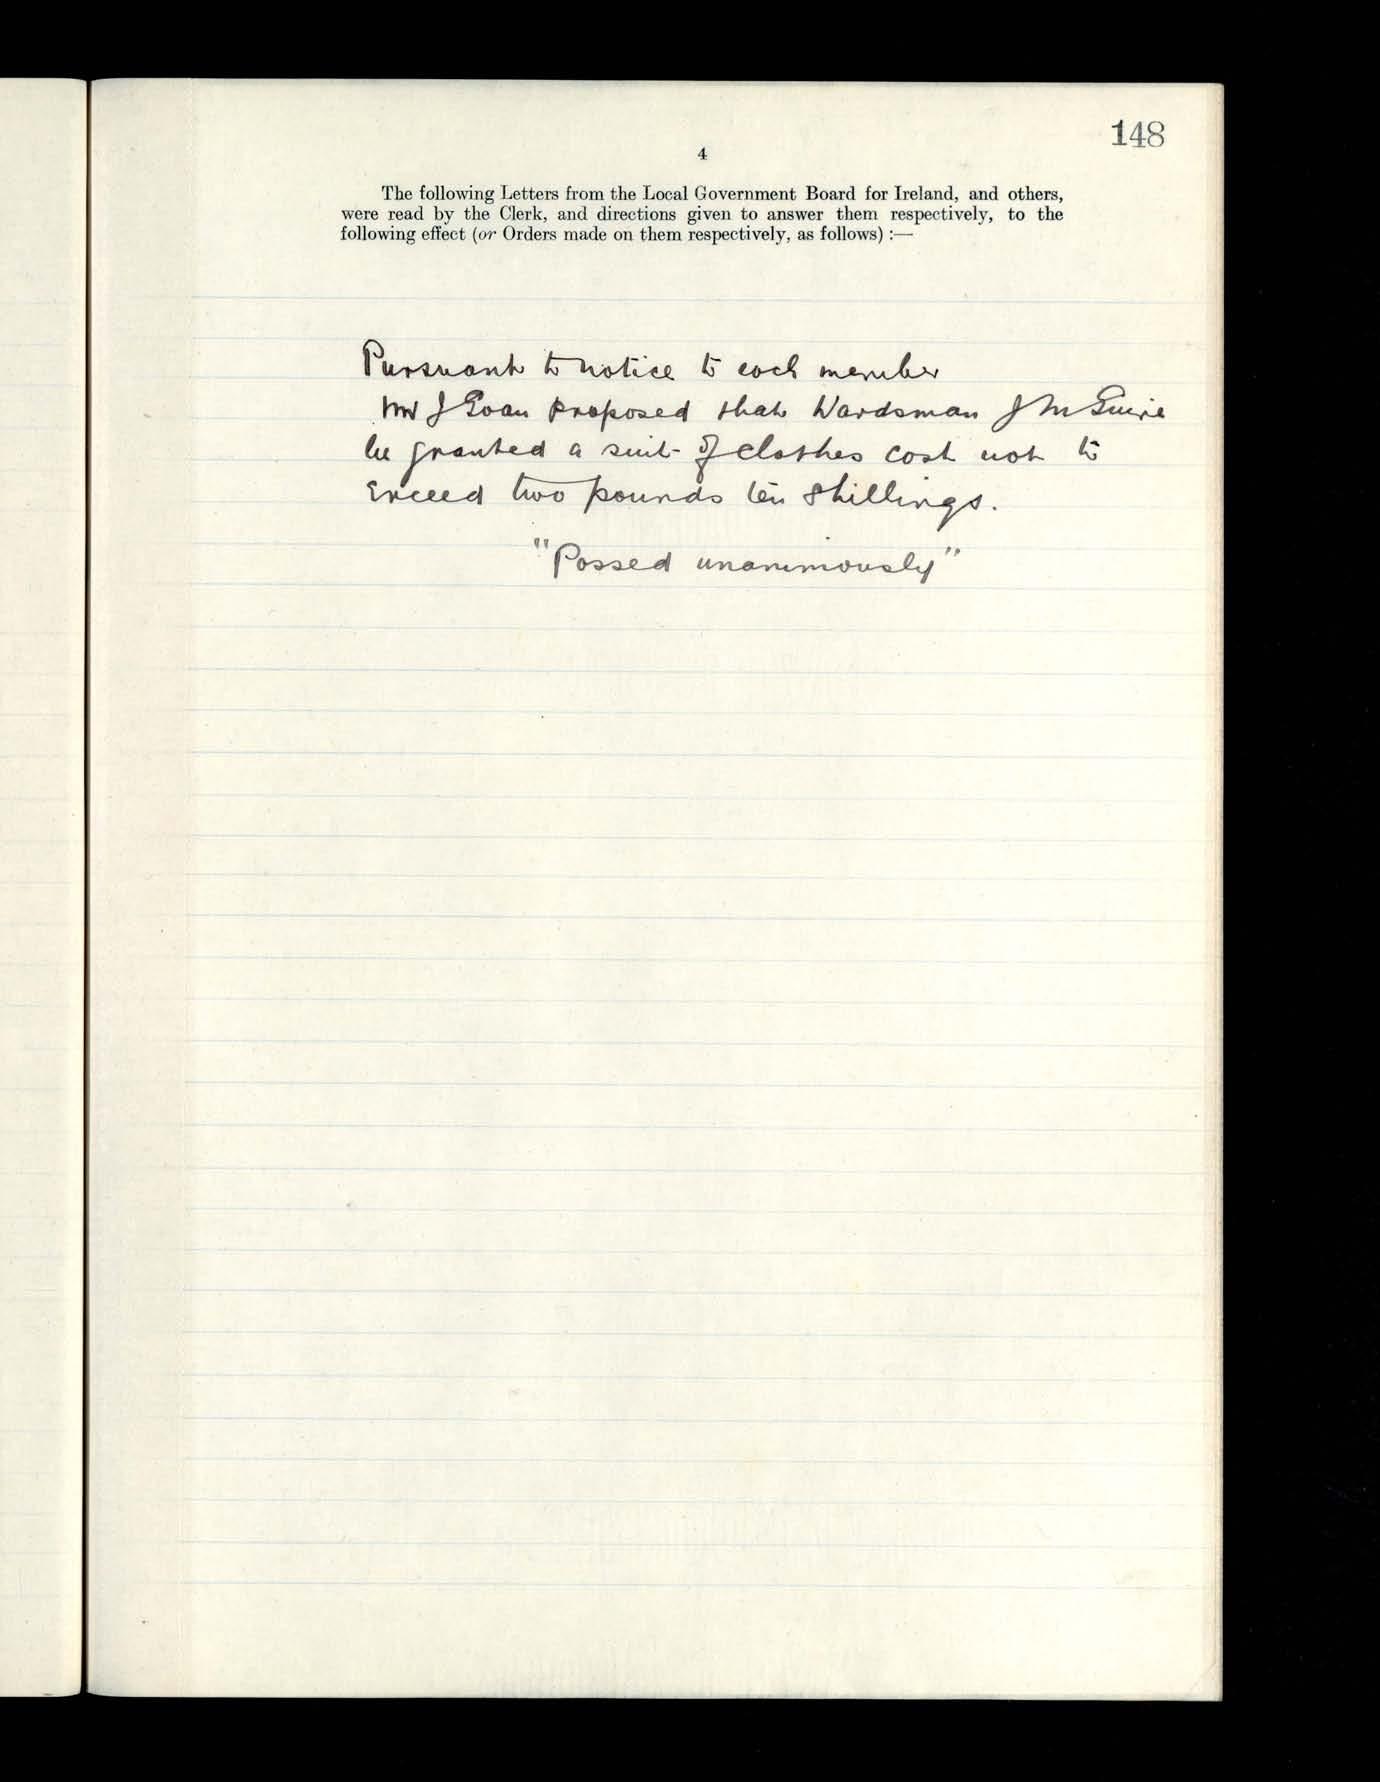 148
4
The following Letters from the Local Government Board for Ireland, and others,
were read by the Clerk, and directions given to answer them respectively, to the
following effect (or Orders made on them respectively, as follows) :—
Pursuant to notice to each member
Mr J Goan proposed that Wardsman J McGuire
be granted a suit of clothes cost not to
exceed two pounds ten shillings.
"Passed unanimously"